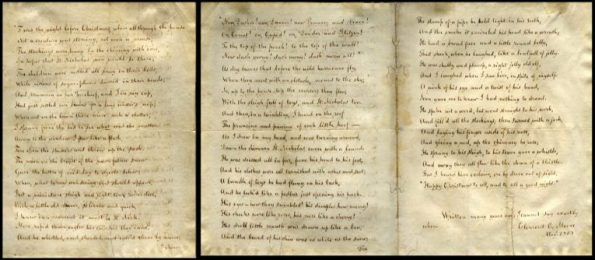 'Twas the night before Christmas, when all through the house
Not a creature was stirring, not even a mouse;
The stockings were hung by the chimney with care,
In hopes that St. Nicholas soon would be there;
The children were nestled all snug in their beds,
While visions of sugar-plums danced in their heads;
And Mamma in her 'kerchief, and I in my cap,
Had just settled our brains for a long winter's nap;
When out on the lawn there arose such a clatter,
I sprang from the bed to see what was the matter.
Away to the window I flew like a flash,
Tore open the shutters and threw up the sash.
The moon, on the breast of the new-fallen snow,
Gave the lustre of mid-day to objects below,
When, what to my wondering eyes should appear,
But a miniature sleigh, and eight tiny rein-deer,
With a little old driver, so lively and quick,
I knew in a moment it must be St. Nick.
More rapid than eagles his coursers they came,
And he whistled, and shouted, and call'd them by name;
"Now, Dasher! now, Dancer! now, Prancer and Vixen!
On, Comet! on, Cupid! on, Donder and Blitzen!
To the top of the porch! to the top of the wall!
Now dash away! dash away! dash away all!"
As dry leaves that before the wild hurricane fly,
When they meet with an obstacle, mount to the sky;
So, up to the house-top the coursers they flew,
With the sleigh full of toys, and St. Nicholas too.
And then, in a twinkling, I heard on the roof
The prancing and pawing of each little hoof—
As I drew in my head, and was turning around,
Down the chimney St. Nicholas came with a bound.
He was dress'd all in fur, from his head to his foot,
And his clothes were all tarnished with ashes and soot;
A bundle of toys he had flung on his back,
And he look'd like a pedlar just opening his pack.
His eyes—how they twinkled! his dimples how merry!
His cheeks were like roses, his nose like a cherry!
His droll little mouth was drawn up like a bow,
And the beard of his chin was as white as the snow;
The
The stump of a pipe he held tight in his teeth,
And the smoke it encircled his head like a wreath;
He had a broad face and a little round belly,
That shook, when he laughed, like a bowlfull of jelly.
He was chubby and plump, a right jolly old elf,
And I laughed when I saw him, in spite of myself;
A wink of his eye and a twist of his head,
Soon gave me to know I had nothing to dread;
He spoke not a word, but went straight to his work,
And fill'd all the stockings; then turned with a jerk,
And laying his finger aside of his nose,
And giving a nod, up the chimney he rose;
He sprang to his sleigh, to his team gave a whistle,
And away they all flew like the down of a thistle.
But I heard him exclaim, ere he drove out of sight,
"Happy Christmas to all, and to all a good night."
Written many years ago;
Clement C. Moore